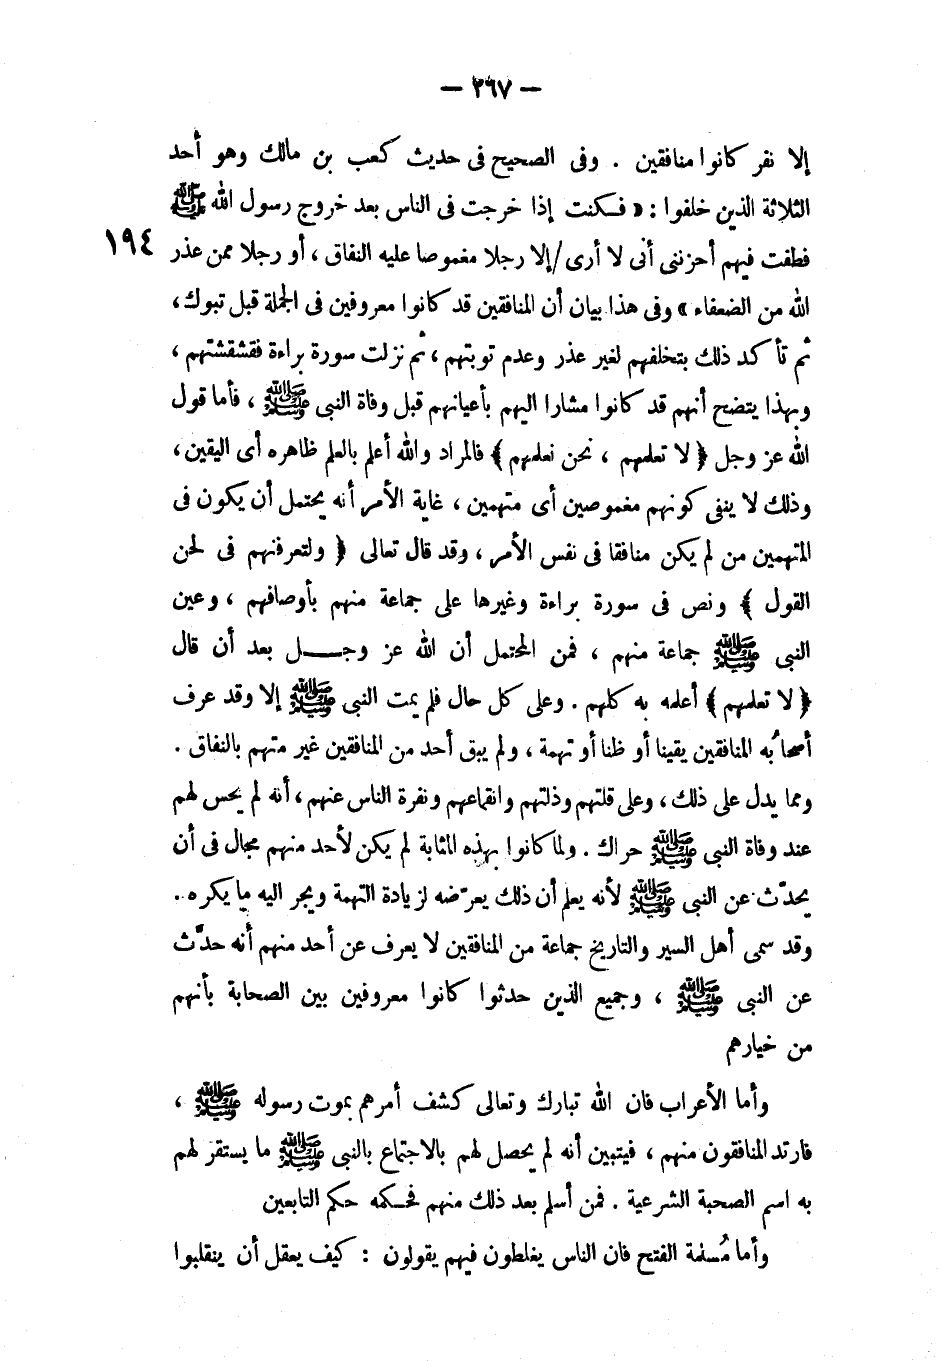 — ٢٦٧ —
إلا نفر كانوا منافقين . وفى الصحيح فى حديث كعب بن مالك وهو أحد
الثلاثة الذين خلفوا : « فكنت إذا خرجت فى الناس بعد خروج رسول الله ﷺ
فطفت فيهم أحزننى أنى لا أرى/إلا رجلا مغموصا عليه النفاق ، أو رجلا ممن عذر
١٩٤
الله من الضعفاء » وفى هذا بيان أن المنافقين قد كانوا معروفين فى الجملة قبل تبوك ،
ثم تأكد ذلك بتخلفهم لغير عذر وعدم توبتهم ، ثم نزلت سورة براءة فقشقشتهم ،
وبهذا يتضح أنهم قد كانوا مشارا اليهم بأعيانهم قبل وفاة النبى ﷺ ، فأما قول
الله عز وجل ﴿ لا تعلمهم ، نحن نعلمهم ﴾ فالمراد والله أعلم بالعلم ظاهره أى اليقين ،
وذلك لا ينفى كونهم مغموصين أى متهمين ، غاية الأمر أنه يحتمل أن يكون فى
المتهمين من لم يكن منافقا فى نفس الأمر ، وقد قال تعالى ﴿ ولتعرفنهم فى لحن
القول ﴾ ونص فى سورة براءة وغيرها على جماعة منهم بأوصافهم ، وعين
النبى ﷺ جماعة منهم ، فمن المحتمل أن الله عز وجـــل بعد أن قال
﴿ لا تعلمهم ﴾ أعلمه به كلهم . وعلى كل حال فلم يمت النبى ﷺ إلا وقد عرف
أصحابُه المنافقين يقينا أو ظنا أو تهمة ، ولم يبق أحد من المنافقين غير متهم بالنفاق .
ومما يدل على ذلك ، وعلى قلتهم وذلتهم وانقماعهم ونفرة الناس عنهم ، أنه لم يحس لهم
عند وفاة النبى ﷺ حراك . ولما كانوا بهذه المثابة لم يكن لأحد منهم مجال فى أن
يحدّث عن النبى ﷺ لأنه يعلم أن ذلك يعرّضه لزيادة التهمة ويجر اليه ما يكره .
وقد سمى أهل السير والتاريخ جماعة من المنافقين لا يعرف عن أحد منهم أنه حدَّث
عن النبى ﷺ ، وجميع الذين حدثوا كانوا معروفين بين الصحابة بأنهم
من خيارهم
وأما الأعراب فان الله تبارك وتعالى كشف أمرهم بموت رسوله ﷺ ،
فارتد المنافقون منهم ، فيتبين أنه لم يحصل لهم بالاجتماع بالنبى ﷺ ما يستقر لهم
به اسم الصحبة الشرعية . فمن أسلم بعد ذلك منهم فحكمه حكم التابعين
وأما مُسلمة الفتح فان الناس يغلطون فيهم يقولون : كيف يعقل أن ينقلبوا